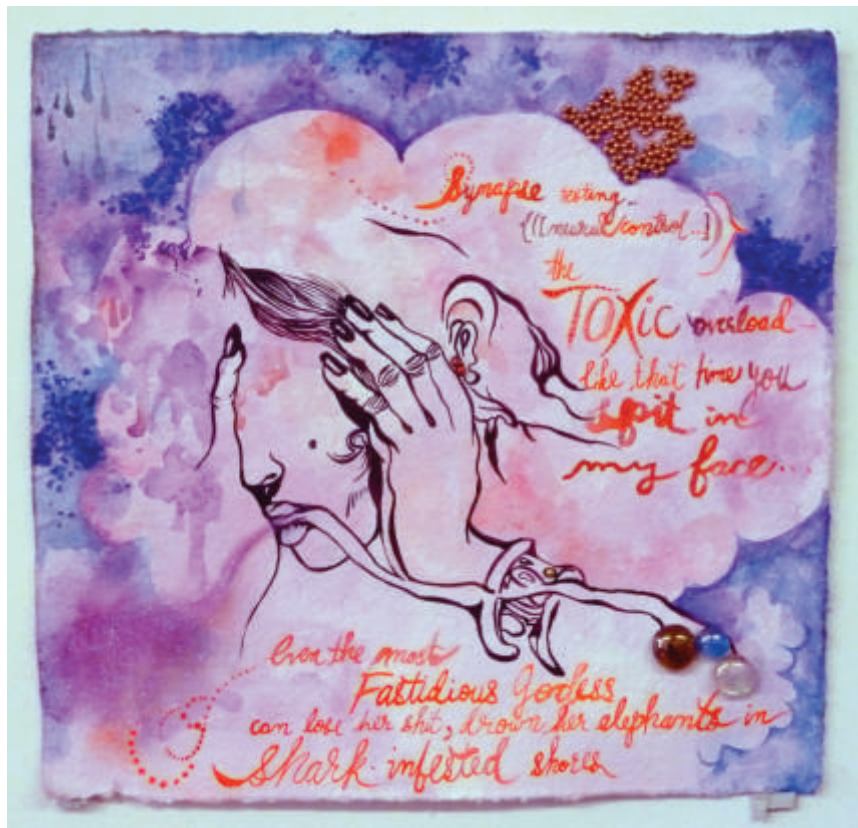 Synapse resting..
{[[neural/control...]
the
TOXic overload
like that time you
spit in
my face...
Even the most
Fastidious Godess
can lose her shit, drown her elephants in
Shark-infested shores